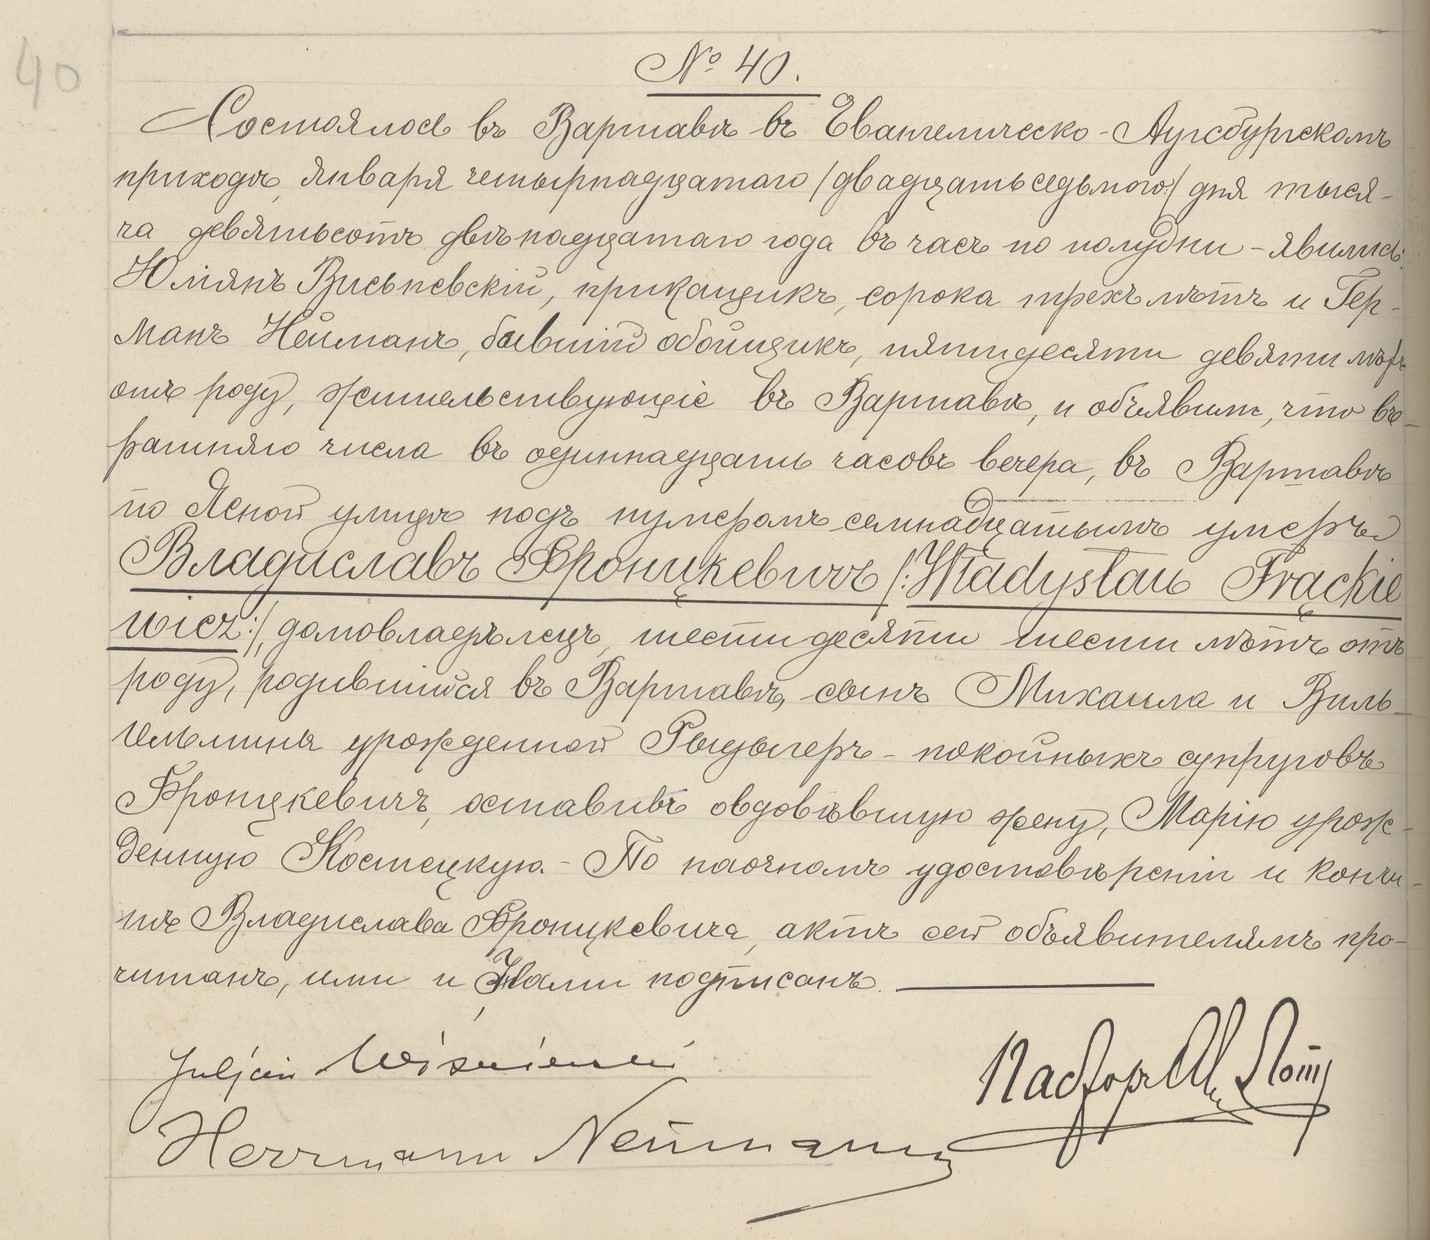 40
№ 40.
Состоялось въ Варшавѣ въ Евангелическо-Аугсбургскомъ
приходѣ, Января четырнадцатаго /двадцать седьмого/ дня тыся-
ча девятьсотъ двѣнадцатаго года въ часъ по полудни – явились:
Юліянъ Висьневскій, прикащикъ, сорока трехъ лѣтъ и Гер-
манъ Нейманъ, бывшій обойщикъ, пятидесяти девяти лѣтъ
отъ роду, жительствующіе въ Варшавѣ, и объявили, что вче-
рашняго числа въ одиннадцать часовъ вечера, въ Варшавѣ
по Ясной улицѣ подъ нумеромъ семнадцатымъ умеръ
Владиславъ Фронцкевичъ /:Władysław Frąckie
wicz:/, домовладѣлецъ, шестидесяти шести лѣтъ отъ
роду, родившійся въ Варшавѣ, сынъ Михаила и Виль-
гельмины урожденной Рыдыгеръ – покойныхъ супруговъ
Фронцкевичъ, оставивъ овдовѣвшую жену, Марію урож-
денную Костецкую. – По наочномъ удостовѣреніи и кончи-
нѣ Владислава Фронцкевича, актъ сей объявителямъ про-
читанъ, ими и Нами подписанъ.
Juljan Wiśniewski
Пасторъ
Herrmann Neumann